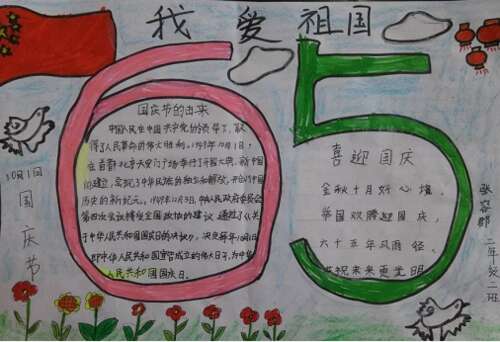 我爱祖国
65
10月1日
国庆节
国庆节的由来
中国人民在中国共产党的领导下,取
得了人民革命的伟大胜利。1949年10月1日,
在首都北京天安门广场举行了开国大典。
的建立,实现了中华民族的独立和解放,开创了中国
历史的新纪元。1949年12月3日,中央人民政府委员会
第四次会议接受全国政协的建议,通过了《关
于中华人民共和国国庆日的决议》,决定每年10月1日
即中华人民共和国宣告成立的伟大日子,为中华
人民共和国国庆日。
喜迎国庆
金秋十月好心情,
举国欢腾迎国庆,
六十五年风雨径,
祝未来更
二年级二班